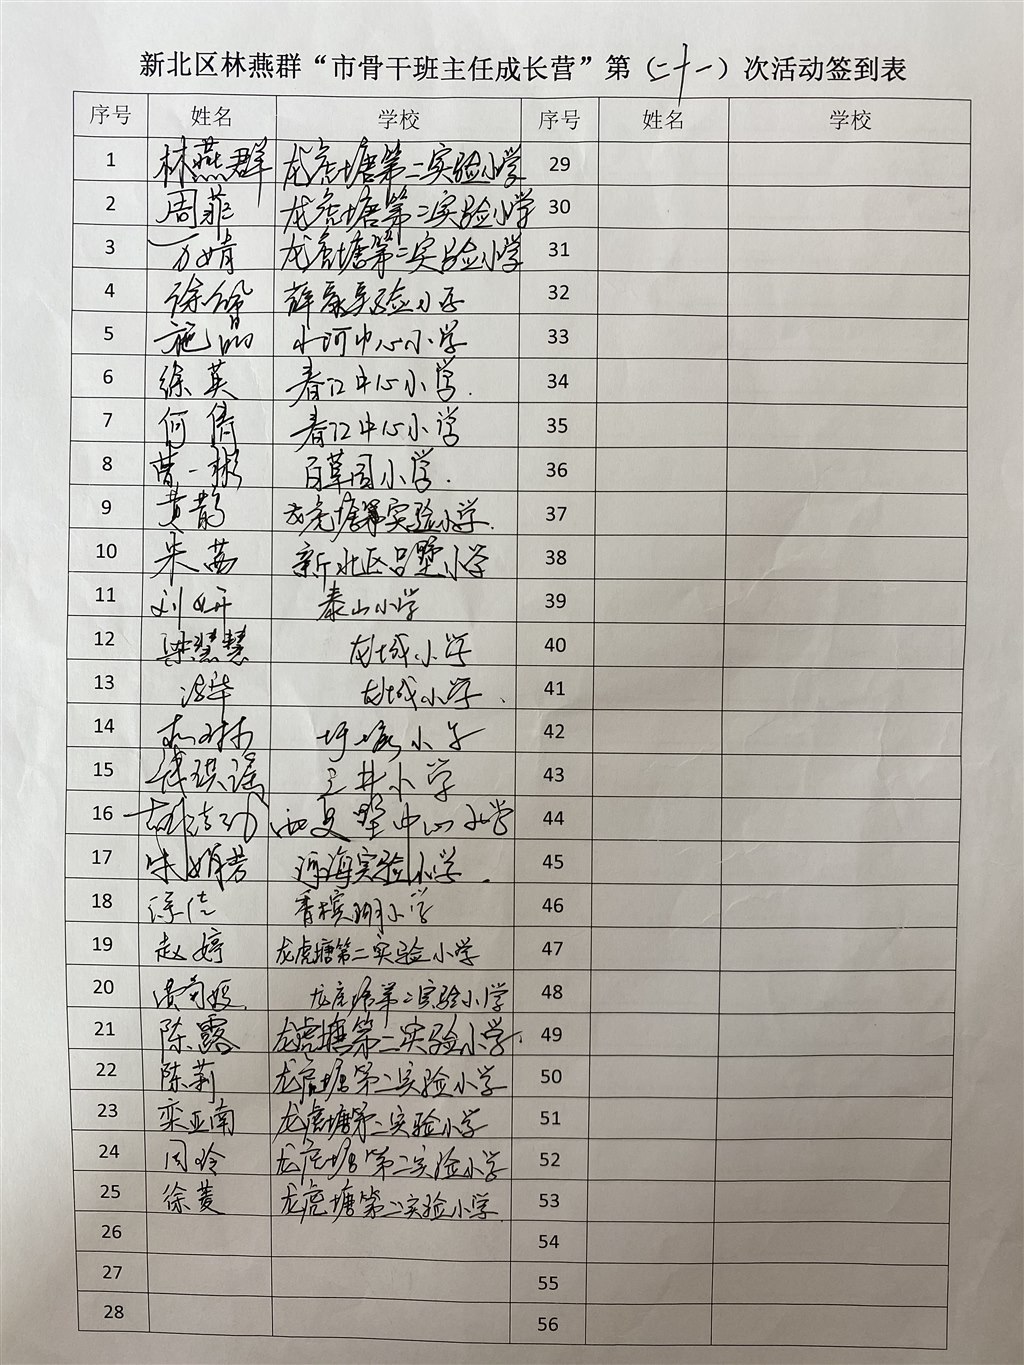 新北区林燕群“市骨干班主任成长营”第（二十一）次活动签到表
序号 姓名 学校 序号 姓名 学校
1 林燕群 龙虎塘第二实验小学 29
2 周菲 龙虎塘第二实验小学 30
3 万婧 龙虎塘第二实验小学 31
4 徐 薛家实验小学 32
5 施晶 小河中心小学 33
6 徐英 春江中心小学. 34
7 何倩 春江中心小学 35
8 曹一彬 百草园小学. 36
9 黄鹊 龙虎塘第实验小学. 37
10 朱茜 新北区吕墅小学 38
11 刘妍 泰山小学 39
12 梁慧慧 龙城小学 40
13 龙城小学. 41
14 圩塘小学 42
15 琪瑶 三井小学 43
16 西夏墅中心小学 44
17 朱娟芳 河海实验小学. 45
18 徐佳 香槟湖小学 46
19 赵婷 龙虎塘第二实验小学 47
20 龙虎塘第二实验小学 48
21 陈露 龙虎塘第二实验小学. 49
22 陈莉 龙虎塘第二实验小学 50
23 栾亚南 龙虎塘第二实验小学 51
24 周玲 龙虎塘第二实验小学 52
25 徐菱 龙虎塘第二实验小学 53
26 54
27 55
28 56